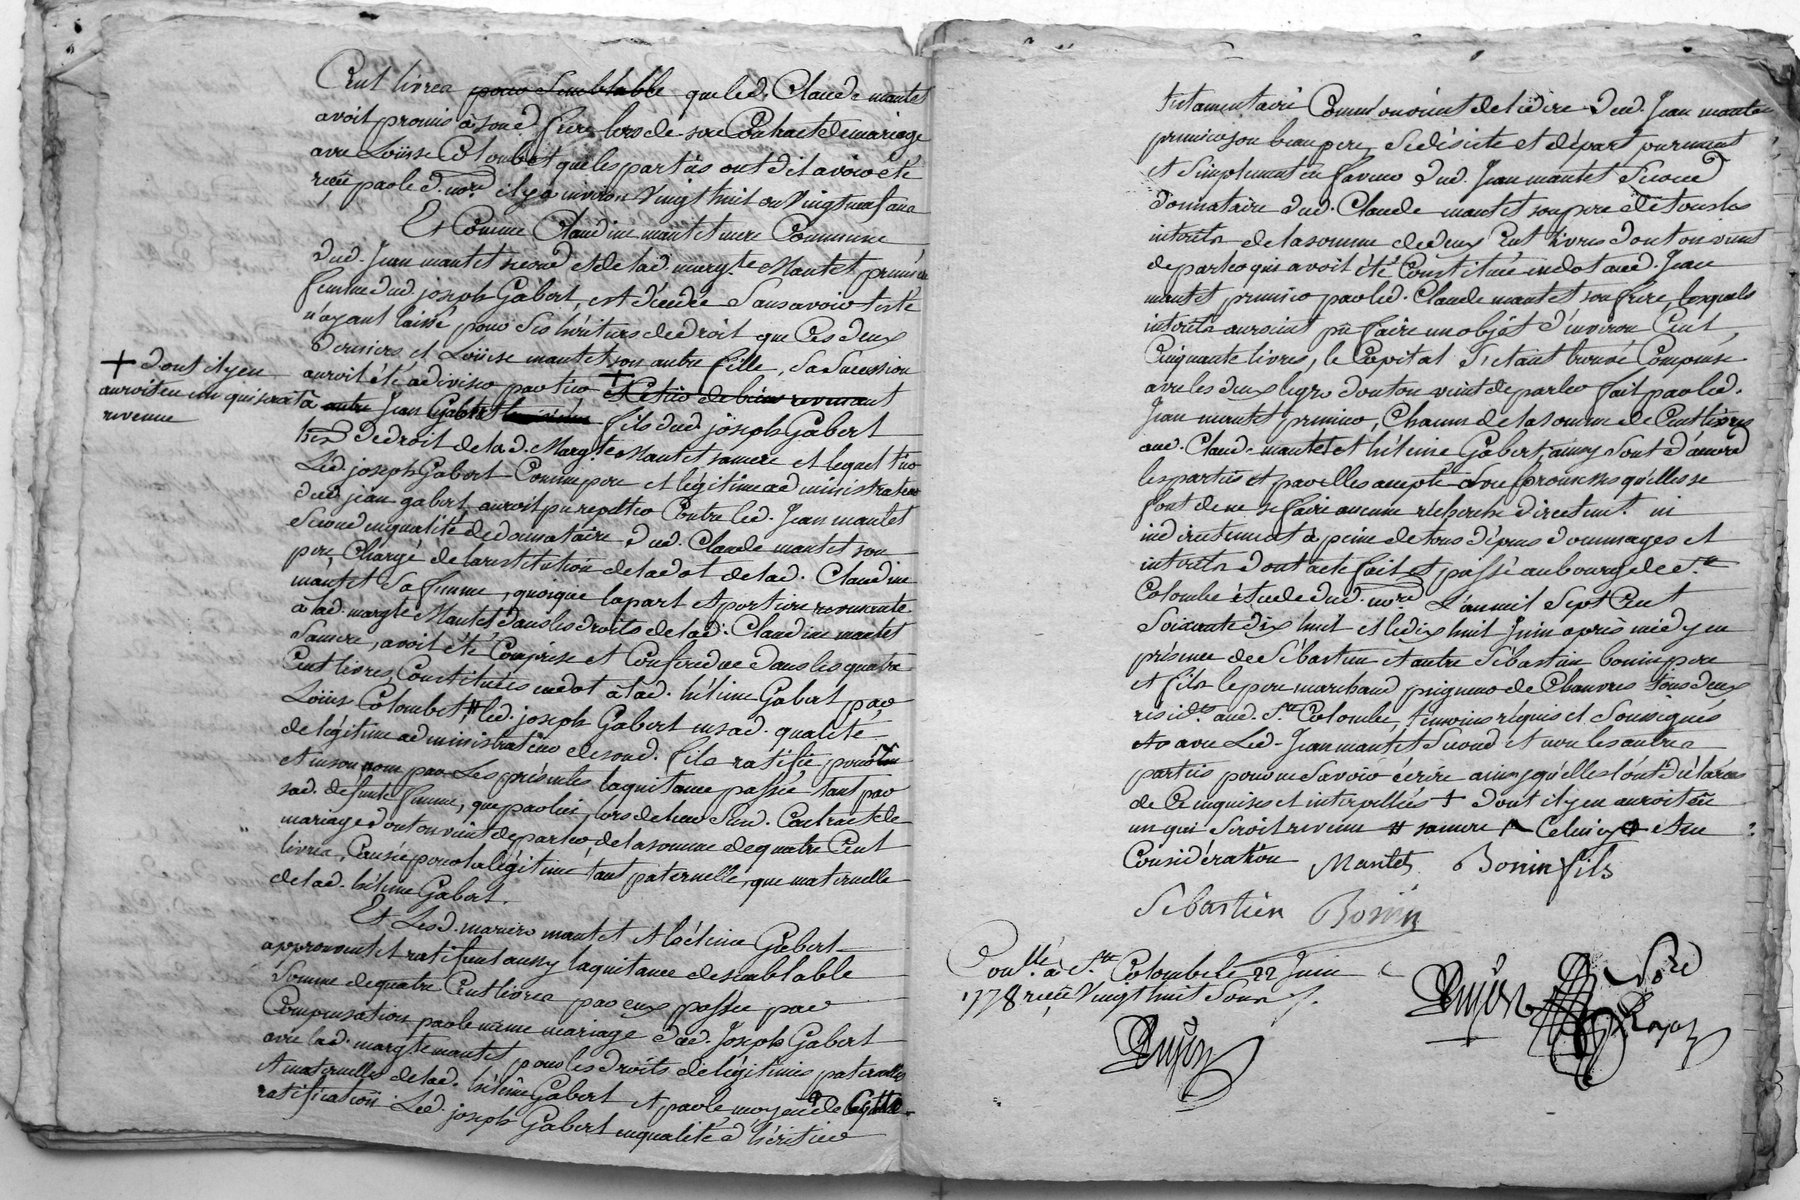 Cent livres pour semblable que led. Claude mantet
avoit promis à son d. frere lors de son Contract de mariage
avec Loüise Colombet que les parties ont dit avoir été
reçeu par le d. nore. il y a environ Vingt huit ou Vingt neuf ans
Et Comme Claudine mantet mere Commune
dud. Jean mantet second et de lad. margte. Mantet premiere
femme dud. joseph Gabert, est décédée Sans avoir testé
n'ayant laissé pour ses héritiers de droit que Ces deux
derniers et Loüise mantet son autre fille, Sa Sucession
auroit été à diviser par tiers + et le tiers de bien revenant
+ dont il y en
auroit eu un qui seroit
revenu
à autre Jean Gabert fils dud. joseph Gabert
her. de droit de lad. Margte. Mantet sa mere et lequel tiers
Led. joseph Gabert Comme pere et légitime administrateur
dud. jean gabert auroit pu repetter Contre led. Jean mantet
Second en qualité de donnataire dud. Claude mantet son
pere, Chargé de la restitution de la dot de lad. Claudine
mantet Sa femme, quoique la part et portion revenante
à lad. margte Mantet dans les droits de lad. Claudine mantet
Sa mere, avoit été Comprise et Confondue dans les quatre
Cent livres Constituées en dot à lad. hélène Gabert par
Loüis Colombet # led. joseph Gabert en sad. qualité
de légitime administrateur de sond. fils ratifie pour
et en son nom par Les présentes la quitance passée tant par
sad. defunte femme, que par lui, lors de leur Susd. Contract de
mariage dont on vient de parler de la somme de quatre Cent
livres, Causée pour la légitime tant paternelle, que maternelle
de lad. hélène Gabert.
Et Lesd. mariés mantet et hélène Gabert
approuvent et ratifient aussy la quitance de semblable
Somme de quatre Cent livres par eux passée par
Compensation par le même mariage dud. Joseph Gabert
avec lad. margte mantet pour les droits de légitimes paternelles
et maternelles de lad. hélène Gabert et par le moyen de Cette
ratification Led. joseph Gabert en qualité d'héritier
testamentaire Comme on vient de le dire dud. Jean mantet
premier son beau pere, se désiste et départ purement
et Simplement en faveur dud. Jean mantet Second
donnataire dud. Claude mantet son pere de tous les
interets de la somme de deux Cent livres dont on vient
de parler qui avoit été Constituée en dot aud. Jean
mantet premier par led. Claude mantet son frere, lesquels
interets auroient pû faire un objet d'environ Cent
Cinquante livres, le Capital s'étant trouvé Compensé
avec les deux legs dont on vient de parler fait par led.
Jean mantet premier, Chacun de la somme de Cent livres
aud. Claude mantet et hélène Gabert, ainsy sont d'accord
les parties et par elles accepté avec promesses qu'elles se
font de ne se faire aucune recherche directemt. ni
indirectement à peine de tous dépens dommages et
interets dont acte fait et passé au bourg de Ste.
Colombe étude dud. nore L'an mil Sept Cent
Soixante dix huit et le dix huit Juin après midy en
présence de Sébastien et autre Sébastien bonin pere
et fils le pere marchand peigneur de Chanvres tous deux
residts. aud. Ste. Colombe, temoins requis et Soussignés
avec Led. Jean mantet Second et non les autres
parties pour ne Savoir écrire ainsy qu'elles l'ont déclaré
de Ce enquises et interpellées + dont il y en auroit eû
un qui Seroit revenu # sa mere Celui cy # et en
Considération Mantet Bonin fils
Sebastien Bonin
Conllé. à Ste. Colombe le 22 Juin
1778 reçeu Vingt huit Sous